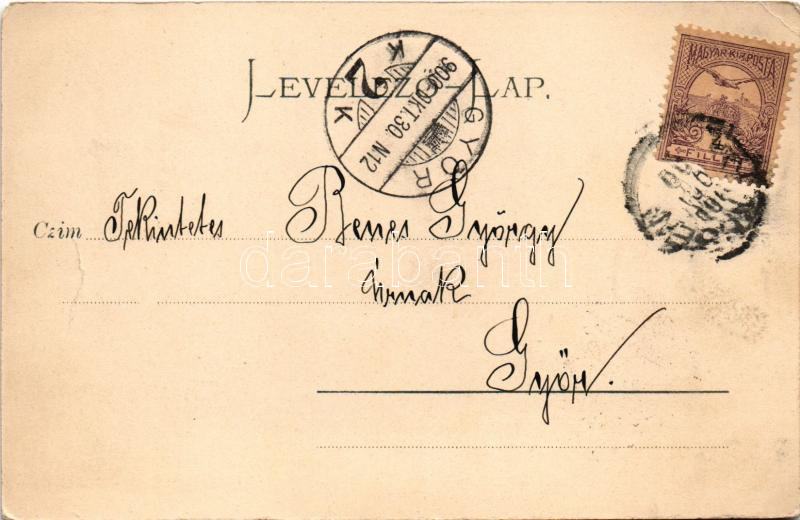 LEVELEZŐ-LAP.
MAGYAR KIR. POSTA
FILLÉR
GYŐR
900 OKT. 30. N12
2
K K
Czim Tekintetes Benes György
Úrnak
Győr.
darabanth